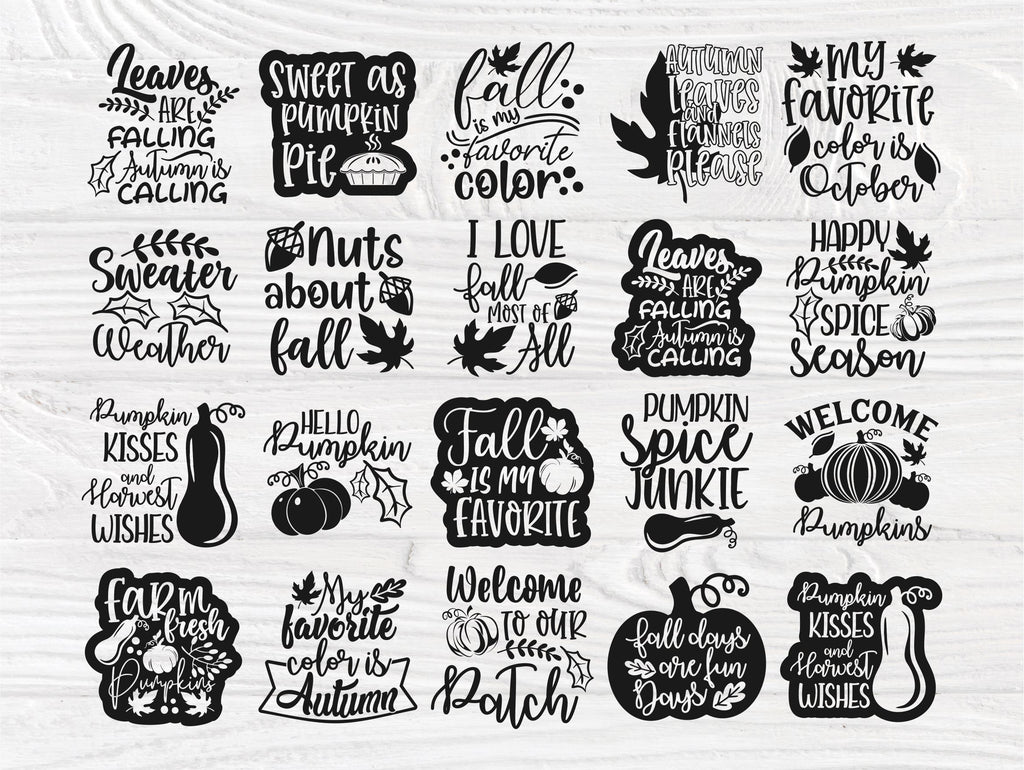 Leaves
ARE
FALLING
Autumn is
CALLING
SWEET as
PUMPKIN
PIE
fall
is my
favorite
color
AUTUMN
Leaves
and
flannels
Please
MY
FAVORITE
color is
October
Sweater
Weather
Nuts
about
fall
I LOVE
fall
MOST OF
All
Leaves
ARE
FALLING
Autumn is
CALLING
HAPPY
Pumpkin
SPICE
season
Pumpkin
KISSES
and
Harvest
WISHES
HELLO
Pumpkin
Fall
IS MY
FAVORITE
PUMPKIN
Spice
JUNKIE
WELCOME
Pumpkins
FARM
fresh
Pumpkins
My
favorite
color is
Autumn
Welcome
TO OUR
Patch
fall days
are fun
Days
Pumpkin
KISSES
and
Harvest
WISHES